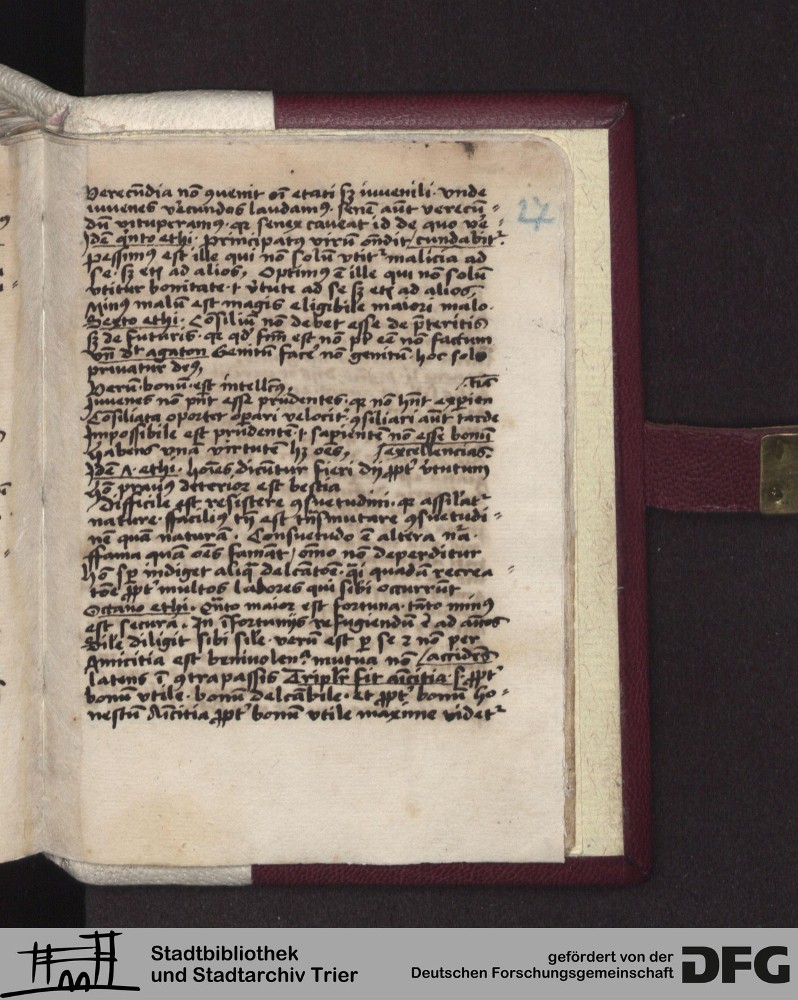 Verecūdia nō ꝯuenit oī etati sꝫ iuuenili · vnde
iuuenes v̾ecundos laudamꝰ · senē aūt verecū〃
dū vituperamꝰ · qꝛ senex caueat id de quo ve〃
Idē q̄nto ethi · Principatꝰ virū ōndit / cundabit᷑
pessimꝰ est ille qui nō solū vtit᷑ malicia ad
se · sꝫ etꝫ ad alios, Optimꝰ ē ille qui nō solū
vtitur bonitate · t v̾tute ad se sꝫ etꝫ ad alios
Minꝰ malū est magis eligibile maiori malo ·
Sexto ethi · Cōsiliū nō debet esse de p̄teritis
sꝫ de futuris · qꝛ qd̾ fcm̄ est nō pt̄ eē nō factum
vn̄ dt̄ agaton Genitū face᷑ nō genitū · hoc solo
priuatur deꝰ,
Verū · bonū · est intellcūs, / tiā
Iuuenes nō pn̄t esse prudentes · qꝛ nō hn̄t experien
Cōsiliata oportet oꝑari velocit᷑ · ꝯsiliari aūt tarde
Impossibile est prudentē · t sapientē nō esse bonū
Habens vnā virtutē hꝫ oēs, / excellencias
Idē ꝥ · ethi · hoīes dicūtur fieri dij ꝓpt᷑ v̾tutum
Hō prauꝰ deterior est bestia
Difficile est resistere ꝯsuetudini · qꝛ assilat᷑
nature · ffacilius tn̄ est trn̄smutare ꝯsuetudi〃
nē quā naturā · Consuetudo ē altera nā ·
ffama quā oēs famāt / oīno nō deperditur
hō sꝑ indiget aliq̄ delcātōē · q̄i quadā recrea〃
tōē ꝓpt᷑ multos labores qui sibi occurrūt
Octauo ethi · Qn̄to maior est fortuna · tāto minꝰ
est secura · In īfortunijs refugiendū ē ad aīcos
Sile diligit sibi sile · verū est ꝑ se ⁊ nō per
Amicitia est beniuolenᵃ mutua nō / accidēs
latens ī ꝯtrapassis Triplr̄ fit aīcitia · s · ꝓpt᷑
bonū vtile · bonū delcābile · et ꝓpt᷑ bonū ho〃
nestū Aīcitia ꝓpt᷑ bonū vtile maxime videt᷑
27
Stadtbibliothek
und Stadtarchiv Trier
gefördert von der
Deutschen Forschungsgemeinschaft
DFG